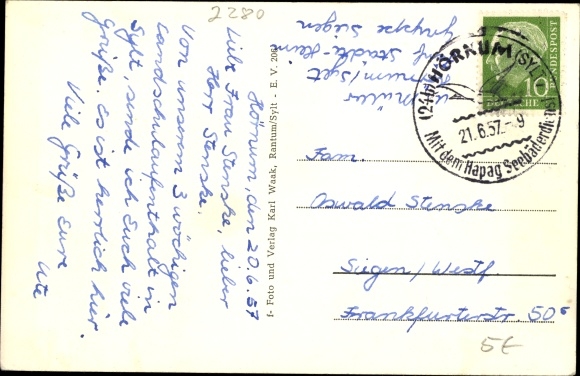 2280
Hörnum, den 20.6.57
Liebe Frau Stenske, lieber
Herr Stenske.
Von unserem 3 wöchigen
Landschulaufenthalt in
Sylt, sende ich Euch viele
Grüße. Es ist herrlich hier.
Viele Grüße Eure
Ute
f- Foto und Verlag Karl Waak, Rantum/Sylt - E. V. 206
Müller
Hörnum/Sylt
Gruppe Siegen
(24b) HÖRNUM (SYLT)
21.6.57.-9
Mit dem Hapag Seebäderdienst
10
DEUTSCHE BUNDESPOST
Fam.
Oswald Stenske
Siegen/Westf.
Frankfurterstr. 50
5€